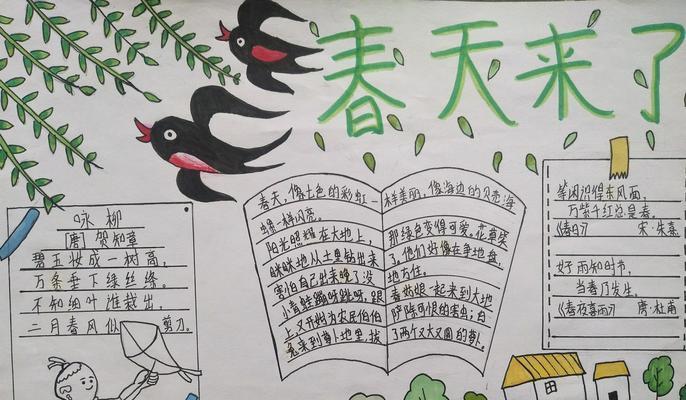 春天来了
咏柳
[唐] 贺知章
碧玉妆成一树高,
万条垂下绿丝绦。
不知细叶谁裁出,
二月春风似 剪刀。
春天,像七色的彩虹一
样美丽,像海边的贝壳海
螺一样闪亮。
阳光照耀在大地上,
咪咪地从土里钻出来
害怕自己起来晚了没
小青蛙蹦呀跳呀,跟
上,又开始为农民伯伯
兔来到萝卜地里,拔
那绿色变得可爱。花草笑
了,他们好像在争地盘,
地方住。
春姑娘一起来到大地
铲除可恨的害虫;白
了两个又大又圆的萝卜。
等闲识得东风面,
万紫千红总是春。
《春日》 宋·朱熹
好雨知时节,
当春乃发生。
《春夜喜雨》 唐·杜甫